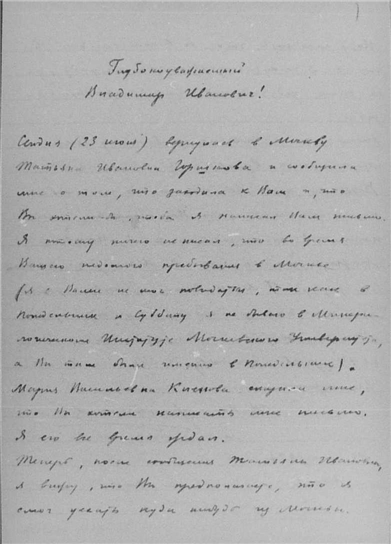 Глубокоуважаемый
Владимир Иванович!
Сегодня (23 июня) вернулась в Москву
Татьяна Ивановна и сообщила
мне о том, что заходила к Вам и, что
Вы хотели, чтобы я написал Вам письмо.
Я потому ничего не писал, что во время
Вашего недолгого пребывания в Москве
(я с Вами не мог повидаться, так как в
Понедельник и Субботу я не бываю в Минера-
логическом Институте Московского Университета,
а Вы там были именно в Понедельник).
Мария Васильевна сказала мне,
что Вы хотели написать мне письмо.
Я его все время ждал.
Теперь, после сообщения Татьяны Ивановны,
я вижу, что Вы предполагаете, что я
смог уехать куда нибудь из Москвы.